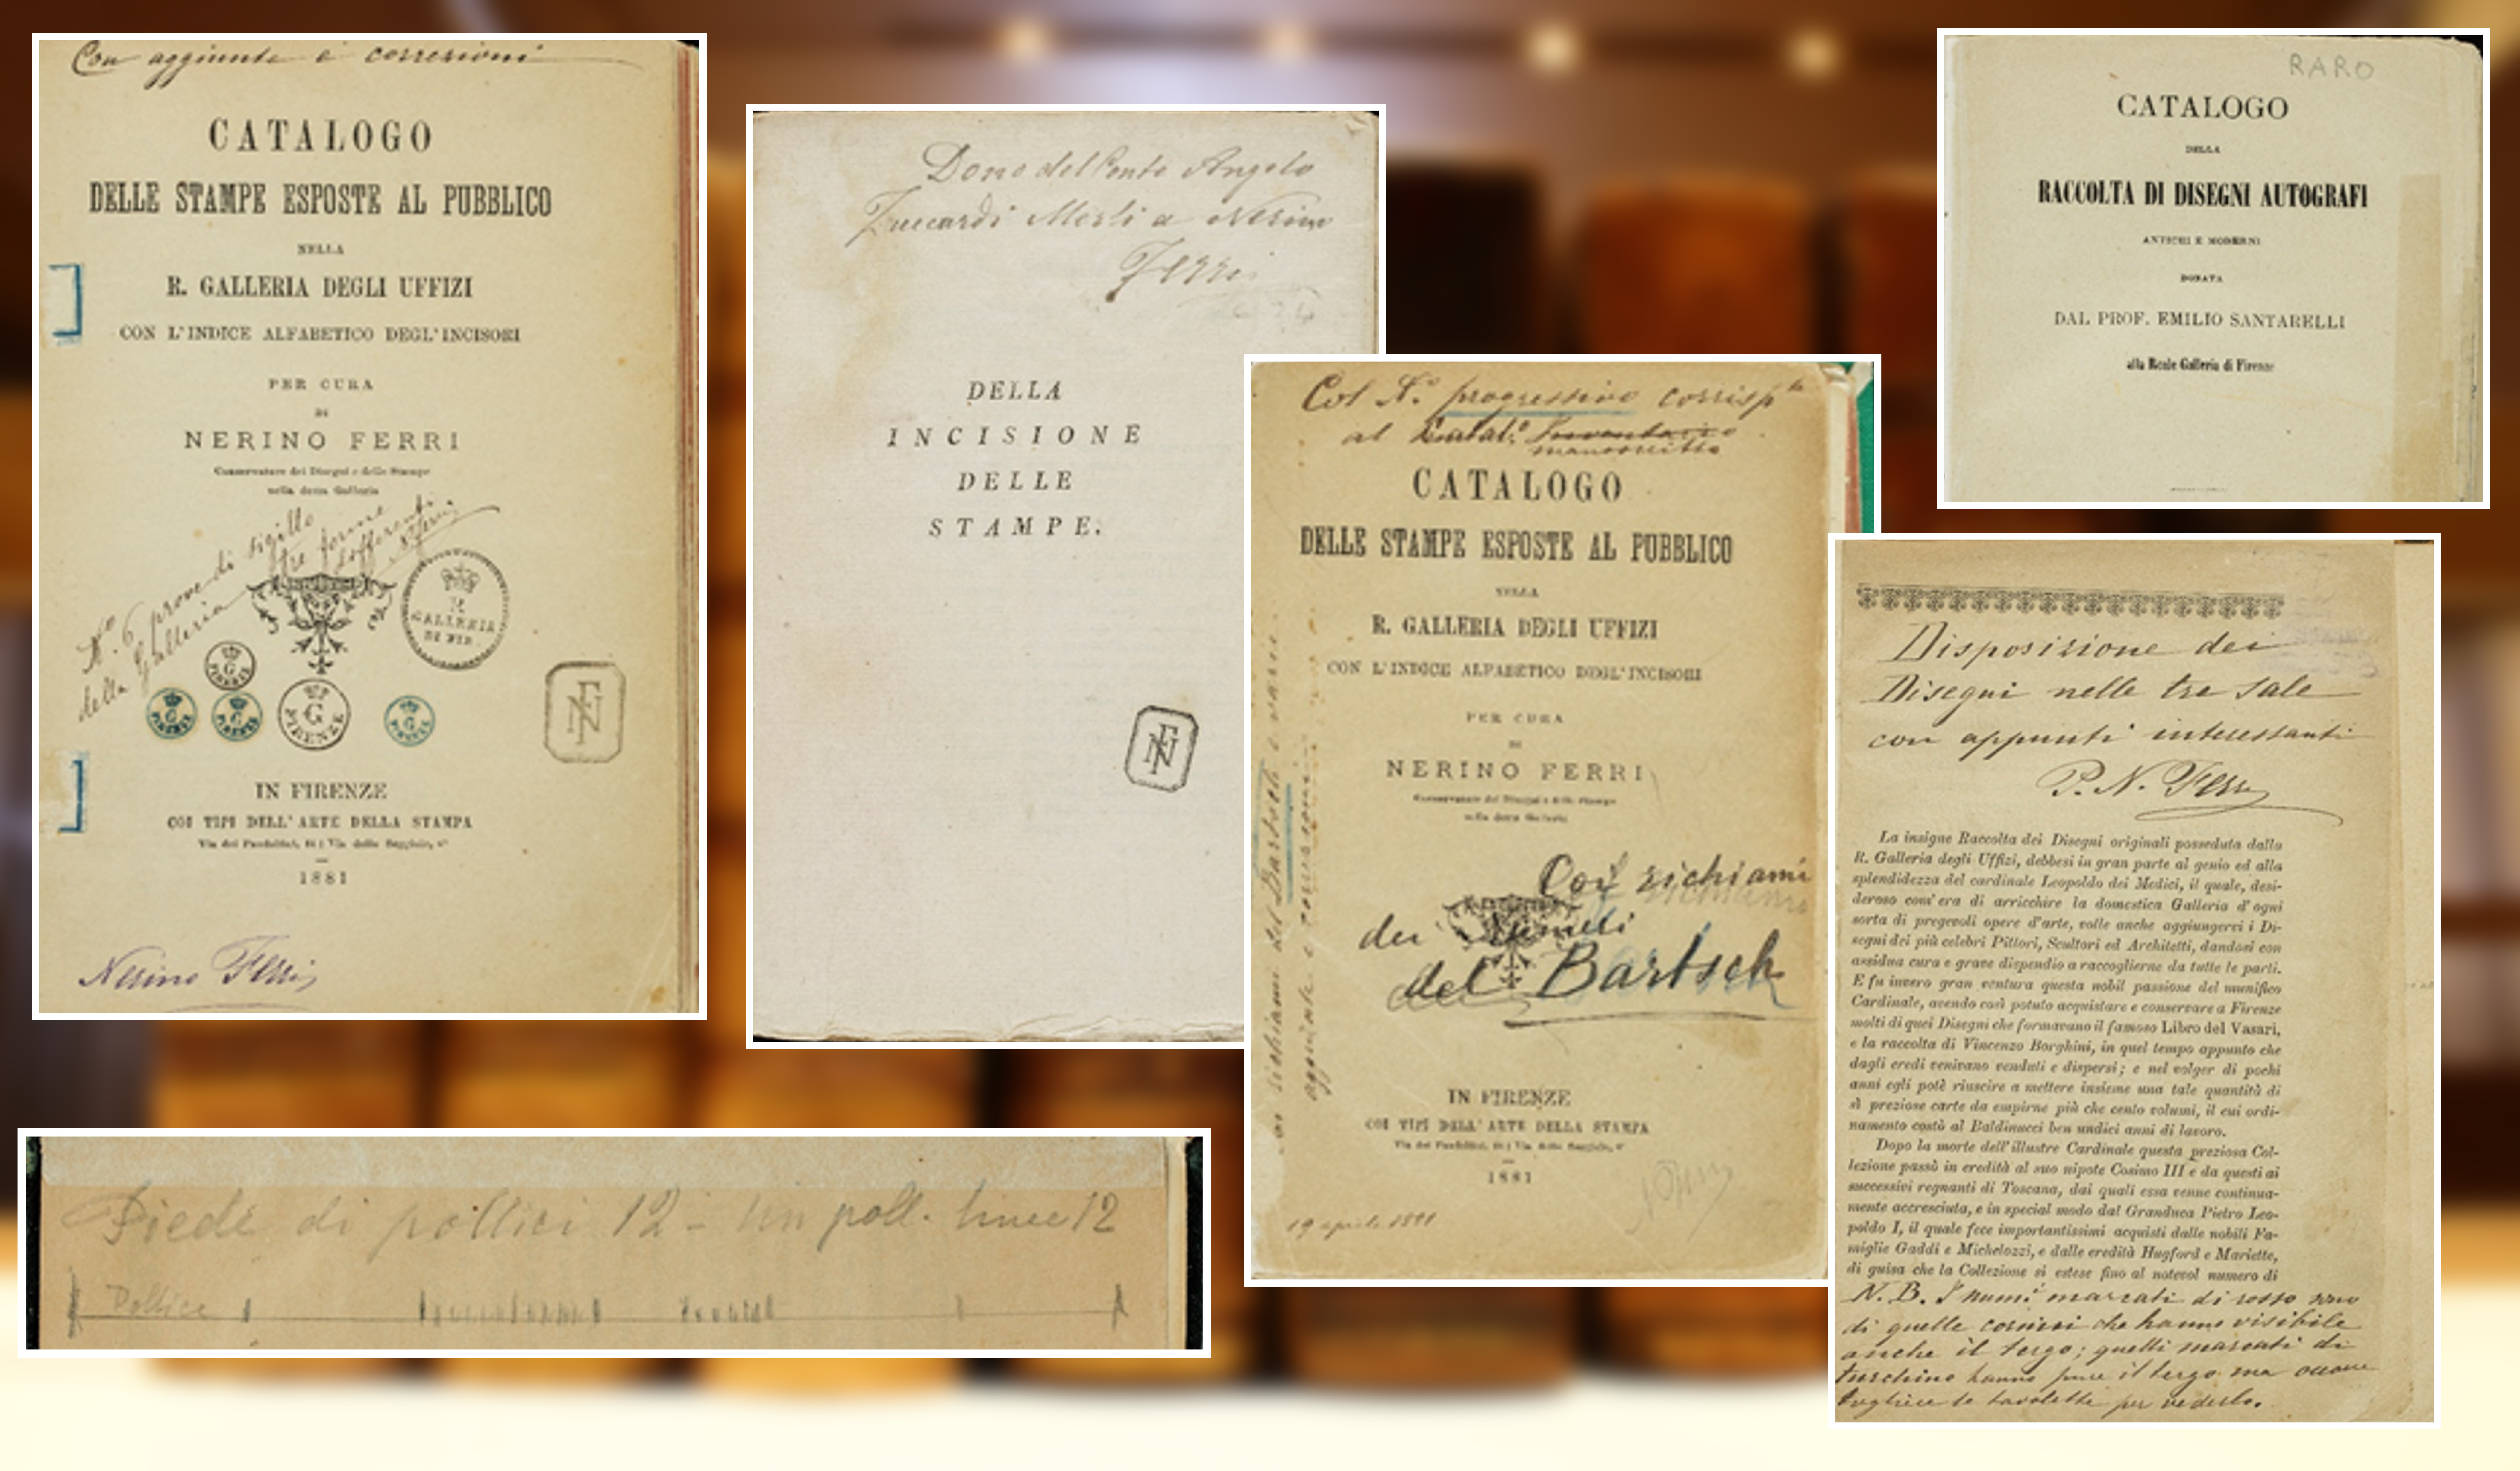 Con aggiunte e correzioni
CATALOGO
DELLE STAMPE ESPOSTE AL PUBBLICO
NELLA
R. GALLERIA DEGLI UFFIZI
CON L'INDICE ALFABETICO DEGL'INCISORI
PER CURA
DI
NERINO FERRI
Conservatore dei Disegni e delle Stampe
nella detta Galleria
N.º 6 prove di sigillo
della Galleria
tre forme
differenti
GALLERIA
DI FIR.
G
FIRENZE
G
FIRENZE
G
FIRENZE
G
FIRENZE
G
FIRENZE
NF
IN FIRENZE
COI TIPI DELL'ARTE DELLA STAMPA
1881
Nerino Ferri
Dono del Conte Angelo
Zuccardi Merli a Nerino
Ferri
DELLA
INCISIONE
DELLE
STAMPE.
NF
Col N.º progressivo corrisp.te
al Catal.º Inventario
manoscritto
CATALOGO
DELLE STAMPE ESPOSTE AL PUBBLICO
NELLA
R. GALLERIA DEGLI UFFIZI
CON L'INDICE ALFABETICO DEGL'INCISORI
PER CURA
DI
NERINO FERRI
Conservatore dei Disegni e delle Stampe
nella detta Galleria
coi richiami del Bartsch e varie
aggiunte e correzioni
Coi richiami
dei Numeri
del Bartsch
IN FIRENZE
COI TIPI DELL'ARTE DELLA STAMPA
1881
19 aprile 1881
RARO
CATALOGO
DELLA
RACCOLTA DI DISEGNI AUTOGRAFI
ANTICHI E MODERNI
DONATA
DAL PROF. EMILIO SANTARELLI
alla Reale Galleria di Firenze
Disposizione dei
Disegni nelle tre sale
con appunti interessanti
P. N. Ferri
La insigne Raccolta dei Disegni originali posseduta dalla
R. Galleria degli Uffizi, debbesi in gran parte al genio ed alla
splendidezza del cardinale Leopoldo dei Medici, il quale, desi-
deroso com'era di arricchire la domestica Galleria d'ogni
sorta di pregevoli opere d'arte, volle anche aggiungervi i Di-
segni dei più celebri Pittori, Scultori ed Architetti, dandosi con
assidua cura e grave dispendio a raccoglierne da tutte le parti.
E fu invero gran ventura questa nobil passione del munifico
Cardinale, avendo così potuto acquistare e conservare a Firenze
molti di quei Disegni che formavano il famoso Libro del Vasari,
e la raccolta di Vincenzo Borghini, in quel tempo appunto che
dagli eredi venivano venduti e dispersi; e nel volger di pochi
anni egli potè riuscire a mettere insieme una tale quantità di
sì preziose carte da empirne più che cento volumi, il cui ordi-
namento costò al Baldinucci ben undici anni di lavoro.
Dopo la morte dell'illustre Cardinale questa preziosa Col-
lezione passò in eredità al suo nipote Cosimo III e da questi ai
successivi regnanti di Toscana, dai quali essa venne continua-
mente accresciuta, e in special modo dal Granduca Pietro Leo-
poldo I, il quale fece importantissimi acquisti dalle nobili Fa-
miglie Gaddi e Michelozzi, e dalle eredità Hugford e Mariette,
di guisa che la Collezione si estese fino al notevol numero di
N. B. I num.i marcati di rosso sono
di quelle cornici che hanno visibile
anche il tergo; quelli marcati di
turchino hanno pure il tergo ma
togliere le tavolette per vederlo.
Piede di pollici 12 - Un poll. linee 12
Pollice